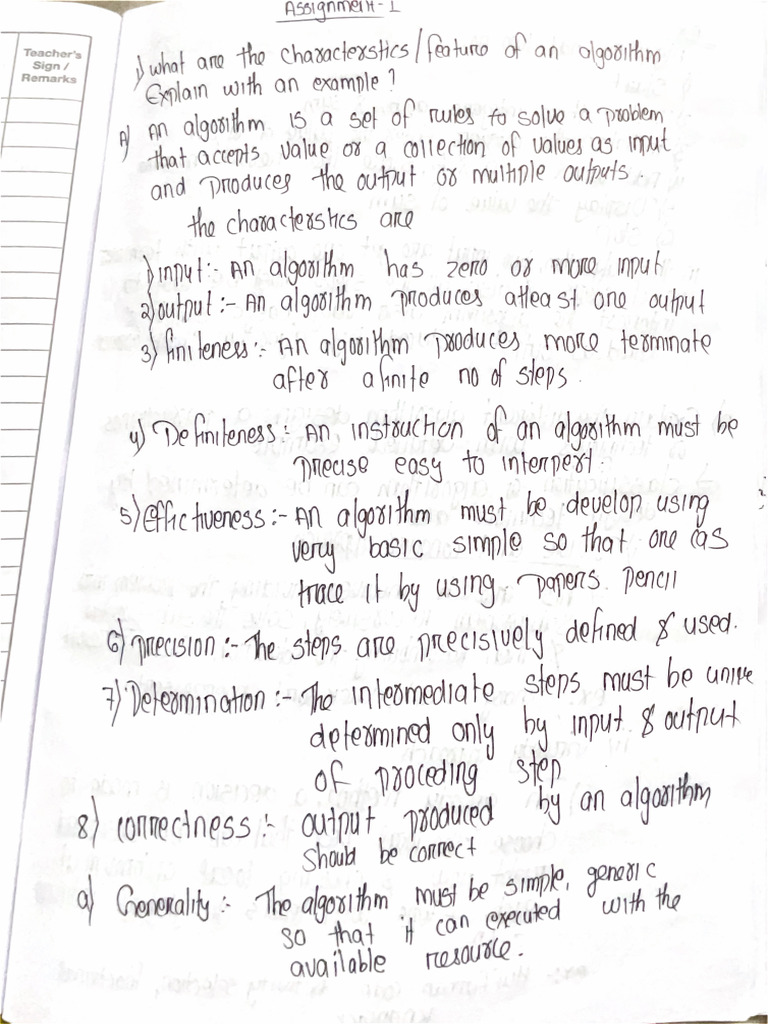 Assignment-1
Teacher's
Sign /
Remarks
1) what are the characterstics/feature of an algorithm
Explain with an example?
A) An algorithm is a set of rules to solve a problem
that accepts value or a collection of values as input
and produces the output or multiple outputs.
the characterstics are
1) input:- An algorithm has zero or more input
2) output:- An algorithm produces atleast one output
3) finiteness:- An algorithm produces more terminate
after a finite no of steps.
4) Definiteness:- An instruction of an algorithm must be
precise easy to interpert.
5) effictiveness:- An algorithm must be develop using
very basic simple so that one cas
trace it by using papers. pencil
6) precision:- The steps are precisively defined & used.
7) Determination:- The intermediate steps must be
determined only by input & output
of proceding step
8) correctness:- output produced by an algorithm
should be correct
a) Generality:- The algorithm must be simple, generic
so that it can executed with the
available resource.